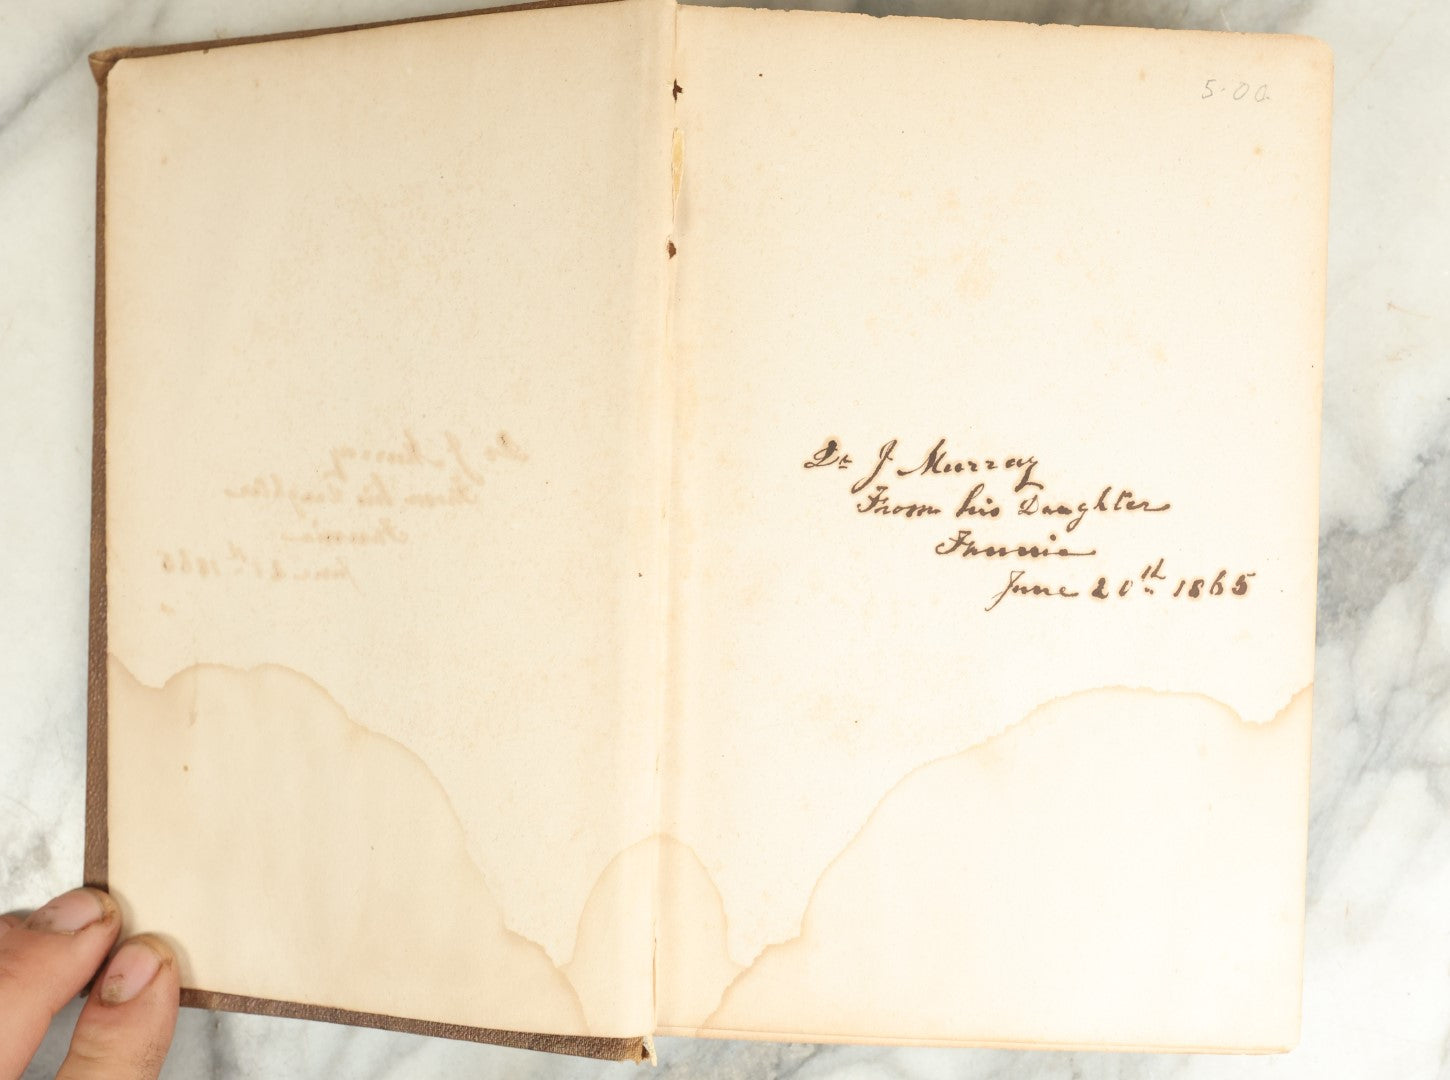 5.00
Dr J Murray
From his Daughter
Fannie
June 20th 1865